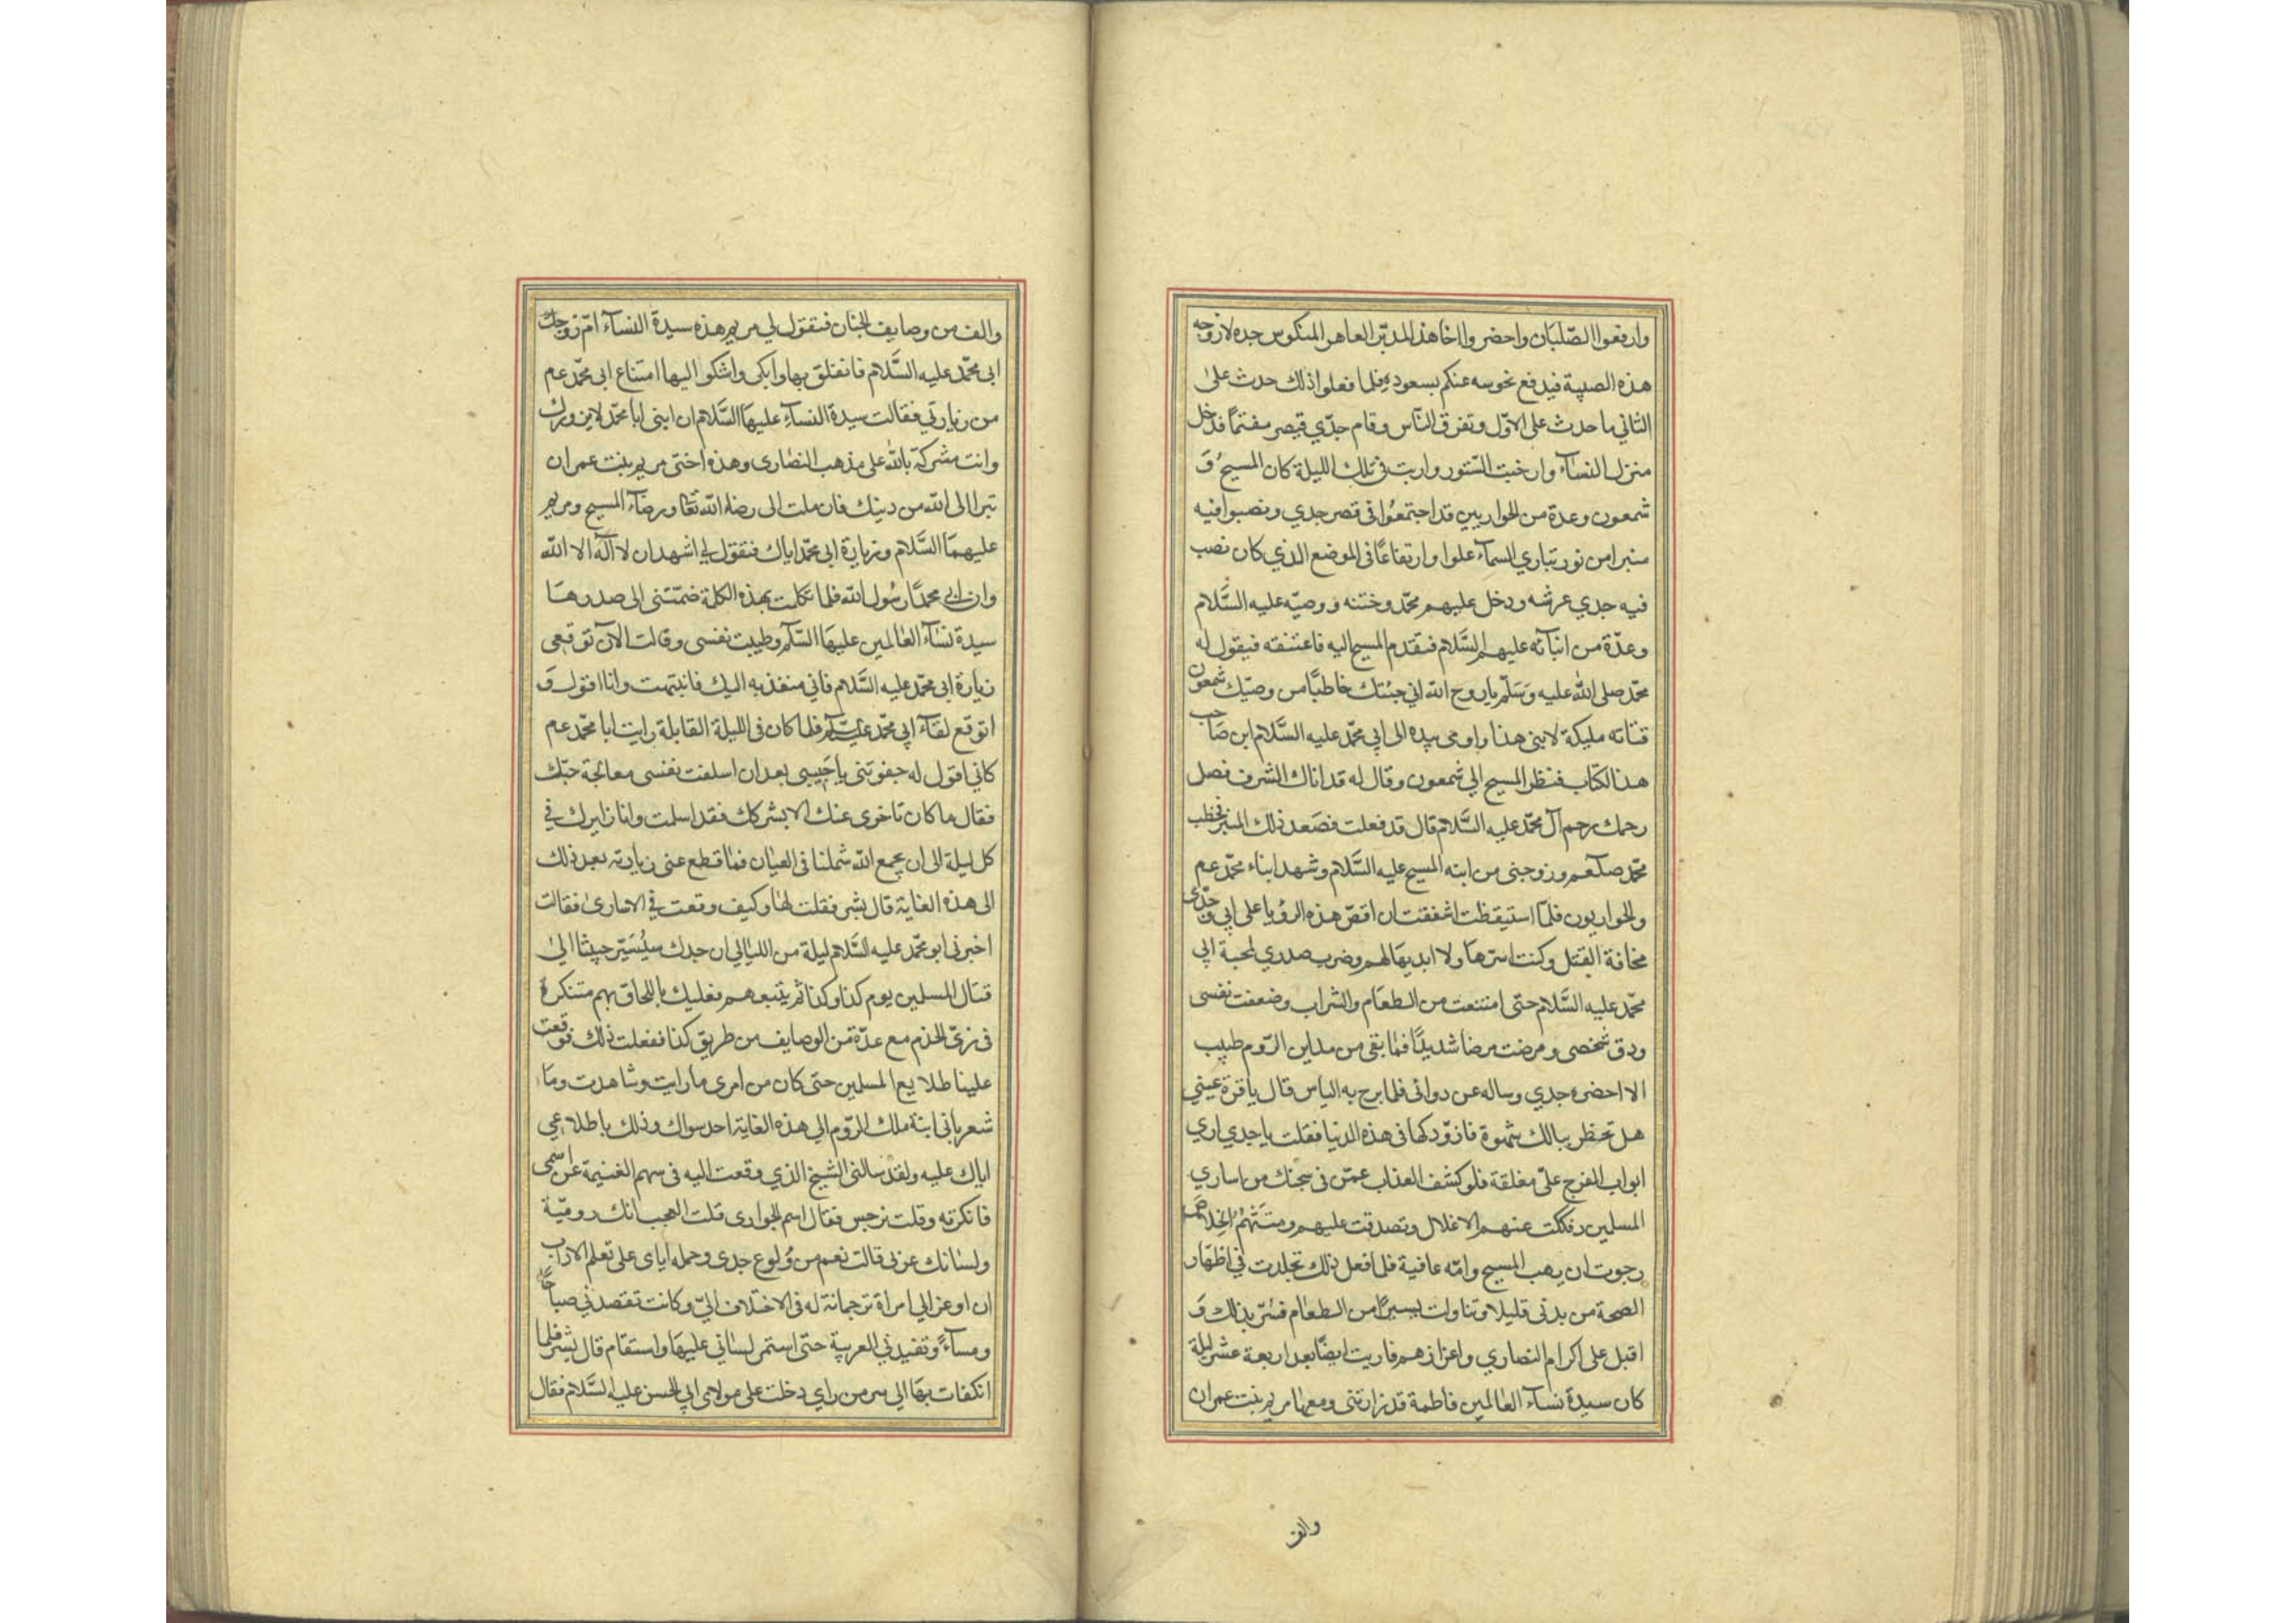 وارفعوا الصّلبَان واحضروا اخا هذا المدبّر العاهر المنكوس جده لازوجه
هذه الصبية فيدفع نحوسه عنكم بسعوده فلما فعلوا ذلك حدث على
الثاني ما حدث على الاوّل وتفرق النّاس وقام جدّي قيصر مغتمًا فدخل
منزل النسآء وارخيت السّتور واريت في تلك الليلة كان المسيحُ وَ
شمعون وعدة من الحواريين قد اجتمعُوا في قصر جدي ونصبوا فيه
منبرا من نور تباري السمآء علوا وارتفاعًا في الموضع الذي كان نصب
فيه جدي عرشه ودخل عليهم محمّد وختنه ووصيّه عليه السَّلام
وعدّة من ابنآئه عليهم السَّلام فتقدم المسيح اليه فاعتنقه فيقول له
محمّد صلى الله عليه وَسَلّم يا روح الله اني جئتك خاطبًا من وصيّك شمعون
فتاته مليكة لابني هذا واومى بيده الى ابي محمّد عليه السَّلام ابن صَاحب
هذا الكتاب فنظر المسيح الي شمعون وقال له قد اتاك الشرف فصل
رحمك برحم آل محمّد عليه السَّلام قال قد فعلت فصَعد ذلك المنبر فخطب
محمّد صلعم وزوجني من ابنه المسيح عليه السَّلام وشهد ابناء محمّد عم
والحواريون فلمّا استيقظت اشفقت ان اقصّ هذه الرؤيا على ابي وجدّى
مخافة القتل وكنت اسّرهَا ولا ابديهَا لهم وضرب صدري لمحبة ابي
محمّد عليه السَّلام حتى امتنعت من الطعَام والشراب وضعفت نفسى
ودق شخصى ومرضت مرضا شديدًا فمٰا بقى من مداين الرّوم طبيب
الا احضره جدي وساله عن دوائى فلما برح به الياس قال يا قرة عيني
هل تخطر ببالك شهوة فازوّدكها فى هذه الدنيا فقلت يا جدي اري
ابواب الفرج علىّ مغلقة فلو كشف العذاب عمّن فى سجنك من اساري
المسلين وفككت عنهم الاغلال وتصدقت عليهم ومنَنتَهُم الخلاصَ
رجوت ان يهب المسيح وامّه عافية فلما فعل ذلك تجلدت في اظهَار
الصحة من بدنى قليلا وتناولت يسيرًا من الطعٰام فسّر بذلك وَ
اقبل على اكرام النصاري واعزازهم فاريت ايضًا بعد اربعة عشر ليلة
كان سيدة نسآء العٰالمين فاطمة قد زارتنى ومعهٰا مريم بنت عمران
والف
والف من وصايف الجنان فتقول لي مريم هذه سيدة النسآء امّ زوجك
ابى محمّد عليه السَّلام فاتعلق بها وابكى واشكو اليها امتناع ابى محمّد عم
من زيارتي فقالت سيدة النسآء عليهَا السَّلام ان ابنى ابا محمّد لا يزورك
وانت مشركة بالله على مذهب النصٰارى وهذه اختى مريم بنت عمران
تبرا الى الله من دينك فان ملت الى رضاء الله تعٰا ورضآء المسيح ومريم
عليهمَا السَّلام وزيارة ابى محمّد اياك فتقول لي اشهد ان لا اله الا الله
وان ابى محمدًا رسُول الله فلما تكلمت بهذه الكلمة ضمّتنى الى صدرهَا
سيدة نسَآء العٰالمين عليهَا السّلم وطيبت نفسى وقالت الآن توقعى
زيارة ابى محمّد عليه السَّلام فاني منفذ به اليك فانتبهت وانا اقول وَ
اتوقع لقآء ابى محمّد عليه السّلم فلما كان فى الليلة القابلة رايت ابا محمّد عم
كاني اقول له جفوتنى يا حَبيبى بعد ان اسلفت نفسى معالجة حبّك
فقال ما كان تاخرى عنك الا بشركك فقد اسلمت وانا زايرك في
كل ليلة الى ان يجمع الله شملنا فى العيٰان فمٰا قطع عنى زيارته بعد ذلك
الى هذه الغاية قال بشر فقلت لهٰا وكيف وقعت في الاسٰارى فقالت
اخبرنى ابو محمّد عليه السَّلام ليلة من الليٰالي ان جدك سيُسَيّر جيشا الىٰ
قتٰال المسلين يوم كذا وكذا ثم يتبعهم فعليك باللحاق بهم متنكرة
فى زىّ الخدم مع عدّة من الوصايف من طريق كذا ففعلت ذلك فوقعت
علينا طلايع المسلين حتى كان من امرى ما رايت وشاهدت ومَا
شعر بانى ابنة ملك الرّوم الي هذه الغاية احد سواك وذلك باطلاعي
اياك عليه ولقد سالنى الشيخ الذي وقعت اليه فى سهم الغنيمة عن اسمى
فانكرته وقلت نرجس فقال اسم الجوارى قلت العجب انك روميّة
ولسٰانك عربى قالت نعم من وُلوع جدى وحمله اياى على تعلم الاداب
ان اوعز الي امراة ترجمانة له فى الاختلاف اليّ وكانت تقصدني صباحًا
ومسآءً وتفيدني العربية حتّى استمر لسٰاني عليهَا واستقام قال بشر فلما
انكفات بهَا الي سر من راي دخلت على مولاى ابي الحسن عليه لسَّلام فقال